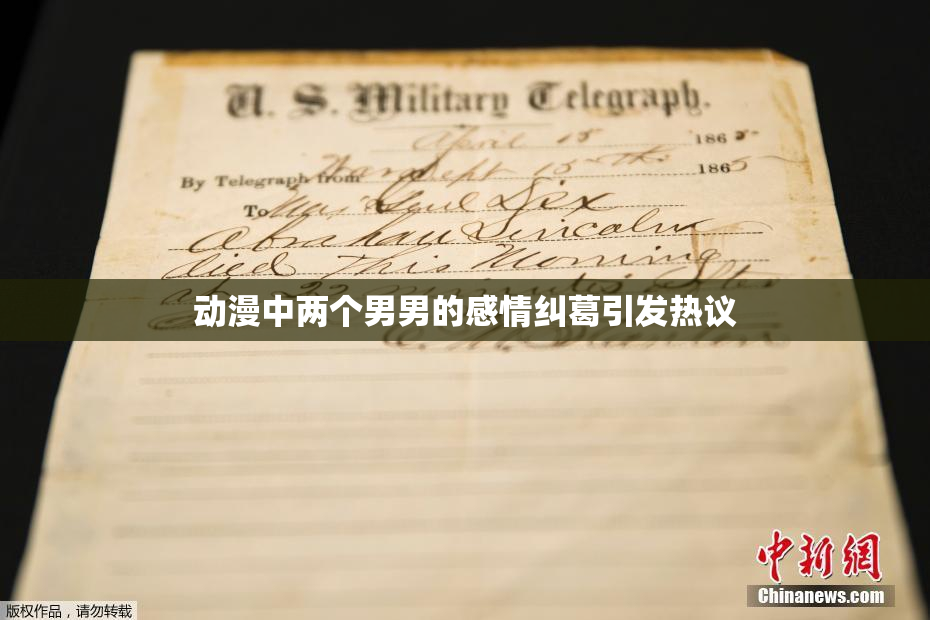 U. S. Military Telegraph.
April 15 1865
By Telegraph from War Dept 15th 1865
To Maj Genl Dix
Abraham Lincoln
died This Morning
at 22 minutes after
动漫中两个男男的感情纠葛引发热议
中新網
Chinanews.com
版权作品,请勿转载